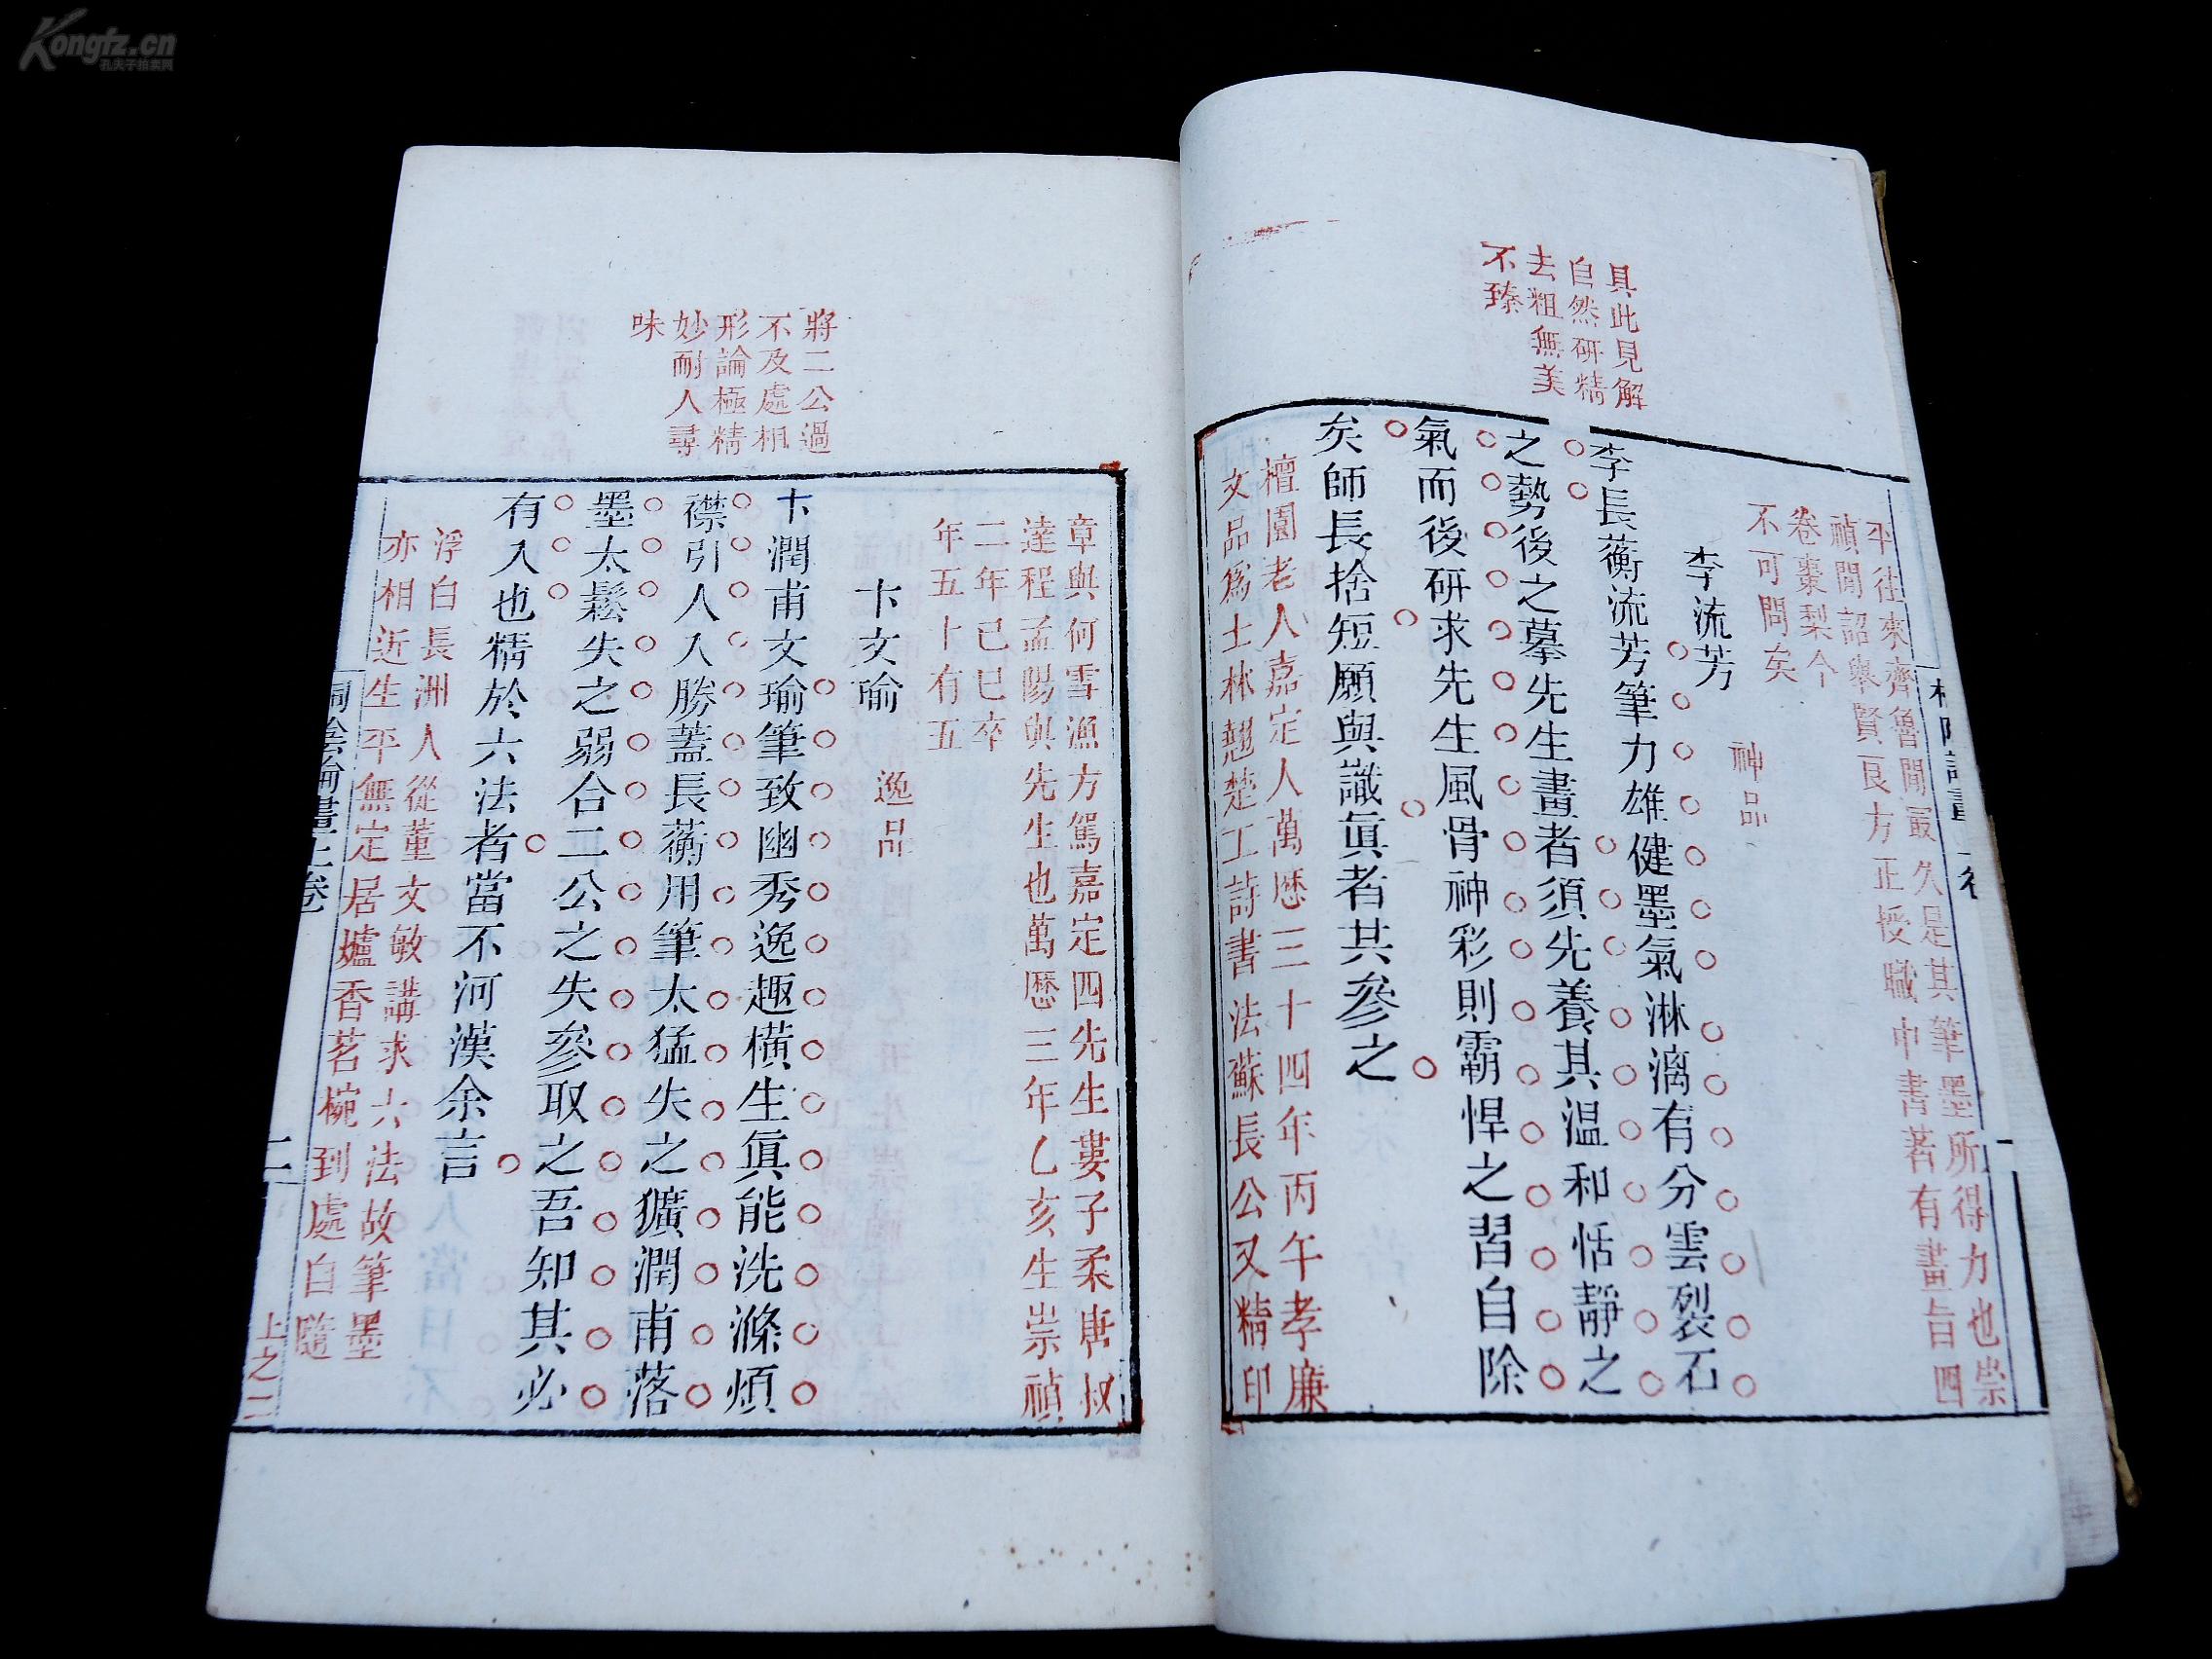 Kongfz.cn
孔夫子拍卖网
具此見解
自然研精
去粗無美
不臻
平往來齊魯間最久是其筆墨所得力也崇
禎間詔舉賢良方正授職中書著有畫旨四
卷棗梨今
不可問矣
李流芳
神品
李長蘅流芳筆力雄健墨氣淋漓有分雲裂石
之勢後之摹先生畫者須先養其温和恬靜之
氣而後研求先生風骨神彩則霸悍之習自除
矣師長捨短願與識眞者共參之
檀園老人嘉定人萬厯三十四年丙午孝廉
文品爲士林翹楚工詩書法蘇長公又精印
將二公過
不及處相
形論極精
妙耐人尋
味
章與何雪漁方駕嘉定四先生婁子柔唐叔
達程孟陽與先生也萬厯三年乙亥生崇禎
二年己巳卒
年五十有五
卞文瑜
逸品
卞潤甫文瑜筆致幽秀逸趣橫生眞能洗滌煩
襟引人入勝蓋長蘅用筆太猛失之獷潤甫落
墨太鬆失之弱合二公之失參取之吾知其必
有入也精於六法者當不河漢余言
浮白長洲人從董文敏講求六法故筆墨
亦相近生平無定居爐香茗椀到處自隨
桐陰論畫上卷
二
上之二